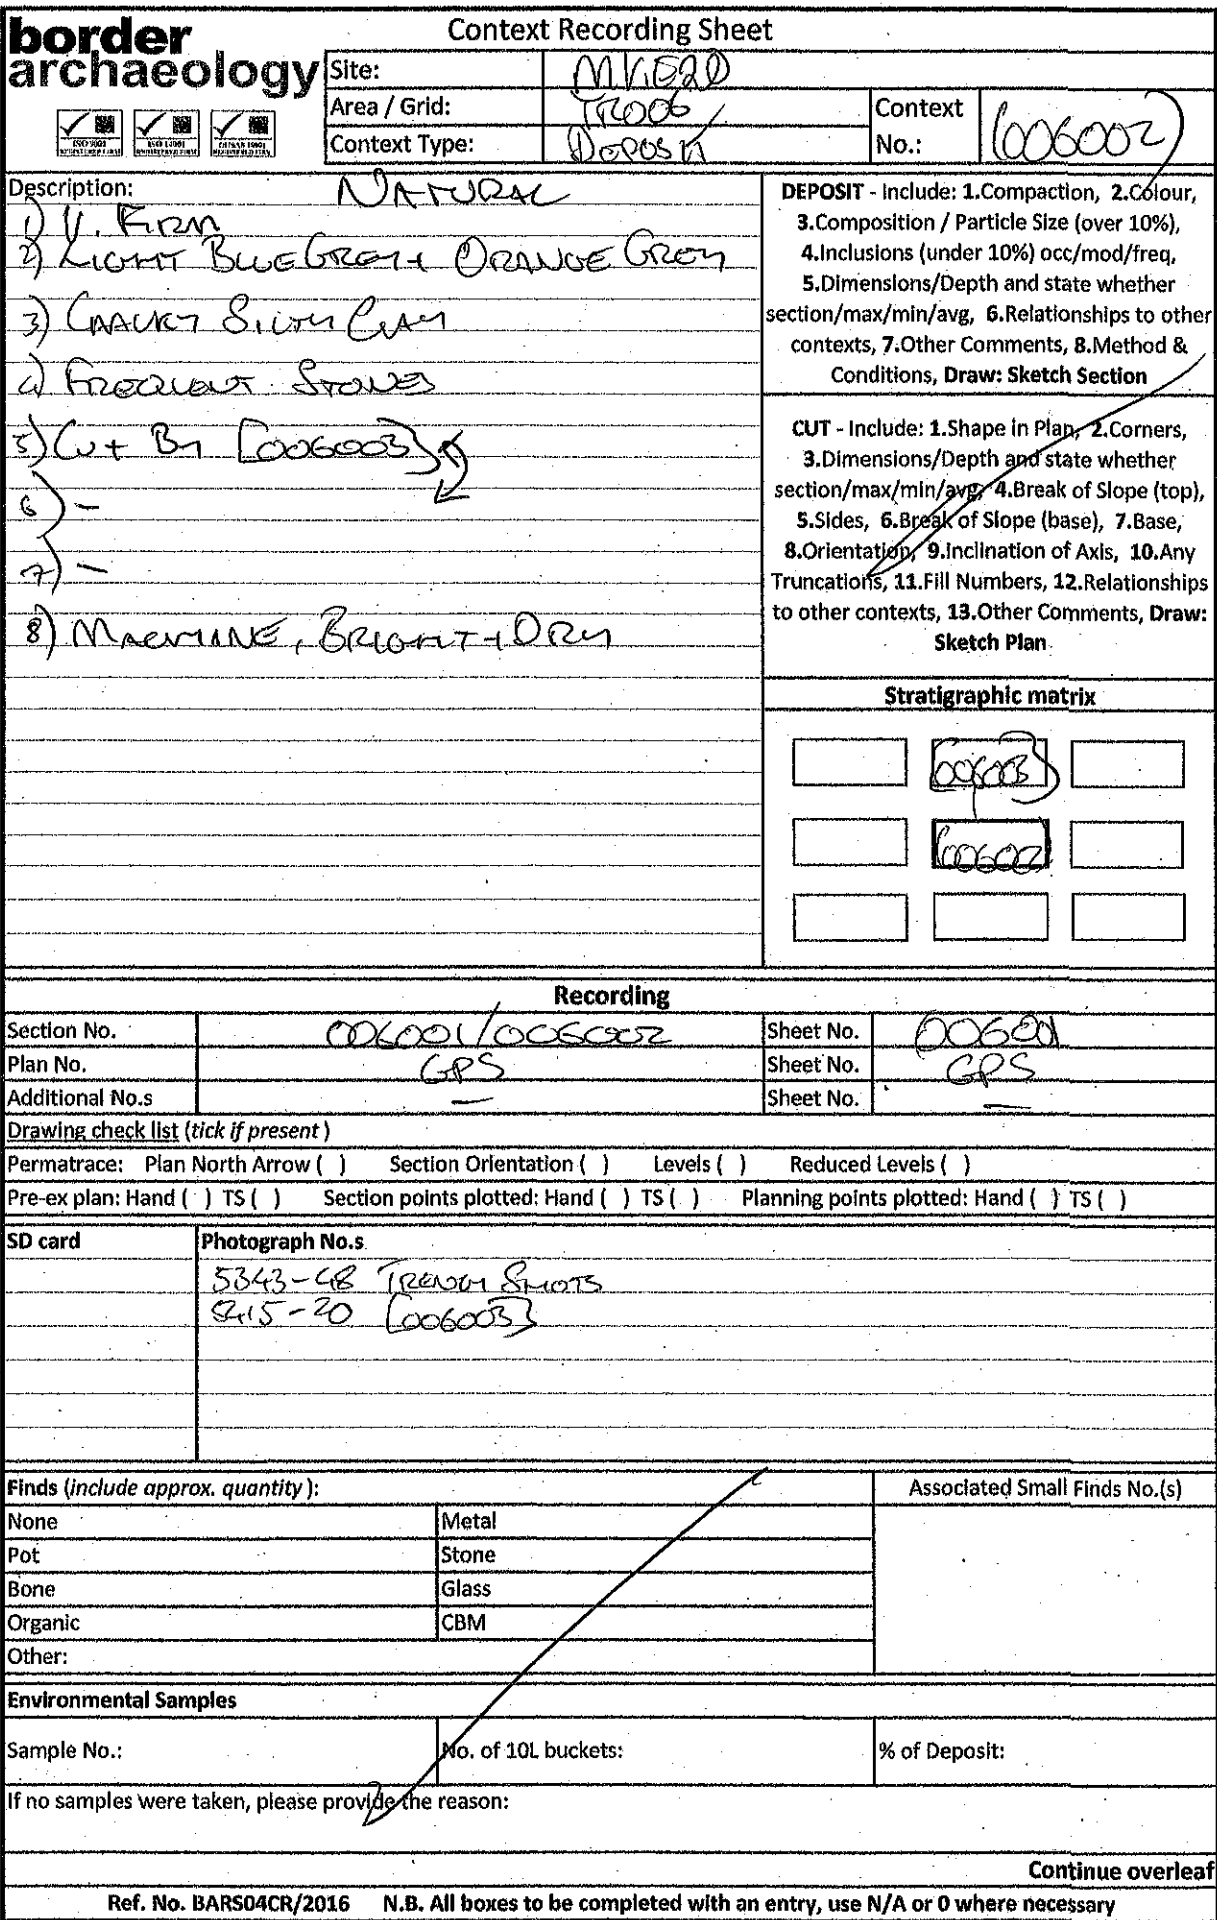 border
archaeology
Context Recording Sheet
Site: MKE20
Area / Grid: TR006
Context Type: DEPOSIT
Context No.: (006002)
Description: NATURAL
1) V. FIRM
2) LIGHT BLUE GREY + ORANGE GREY
3) CHALKY SILTY CLAY
4) FREQUENT STONES
5) CUT BY [006003]
6) –
7) –
8) MACHINE, BRIGHT + DRY
DEPOSIT - Include: 1.Compaction, 2.Colour,
3.Composition / Particle Size (over 10%),
4.Inclusions (under 10%) occ/mod/freq,
5.Dimensions/Depth and state whether
section/max/min/avg, 6.Relationships to other
contexts, 7.Other Comments, 8.Method &
Conditions, Draw: Sketch Section
CUT - Include: 1.Shape in Plan, 2.Corners,
3.Dimensions/Depth and state whether
section/max/min/avg, 4.Break of Slope (top),
5.Sides, 6.Break of Slope (base), 7.Base,
8.Orientation, 9.Inclination of Axis, 10.Any
Truncations, 11.Fill Numbers, 12.Relationships
to other contexts, 13.Other Comments, Draw:
Sketch Plan
Stratigraphic matrix
[006003]
(006002)
Recording
Section No. 006001/006002 Sheet No. 006001
Plan No. GPS Sheet No. GPS
Additional No.s — Sheet No. —
Drawing check list (tick if present)
Permatrace: Plan North Arrow ( ) Section Orientation ( ) Levels ( ) Reduced Levels ( )
Pre-ex plan: Hand ( ) TS ( ) Section points plotted: Hand ( ) TS ( ) Planning points plotted: Hand ( ) TS ( )
SD card Photograph No.s
5343-48 TRENCH SHOTS
5415-20 [006003]
Finds (include approx. quantity): Associated Small Finds No.(s)
None Metal
Pot Stone
Bone Glass
Organic CBM
Other:
Environmental Samples
Sample No.: No. of 10L buckets: % of Deposit:
If no samples were taken, please provide the reason:
Continue overleaf
Ref. No. BARS04CR/2016 N.B. All boxes to be completed with an entry, use N/A or 0 where necessary